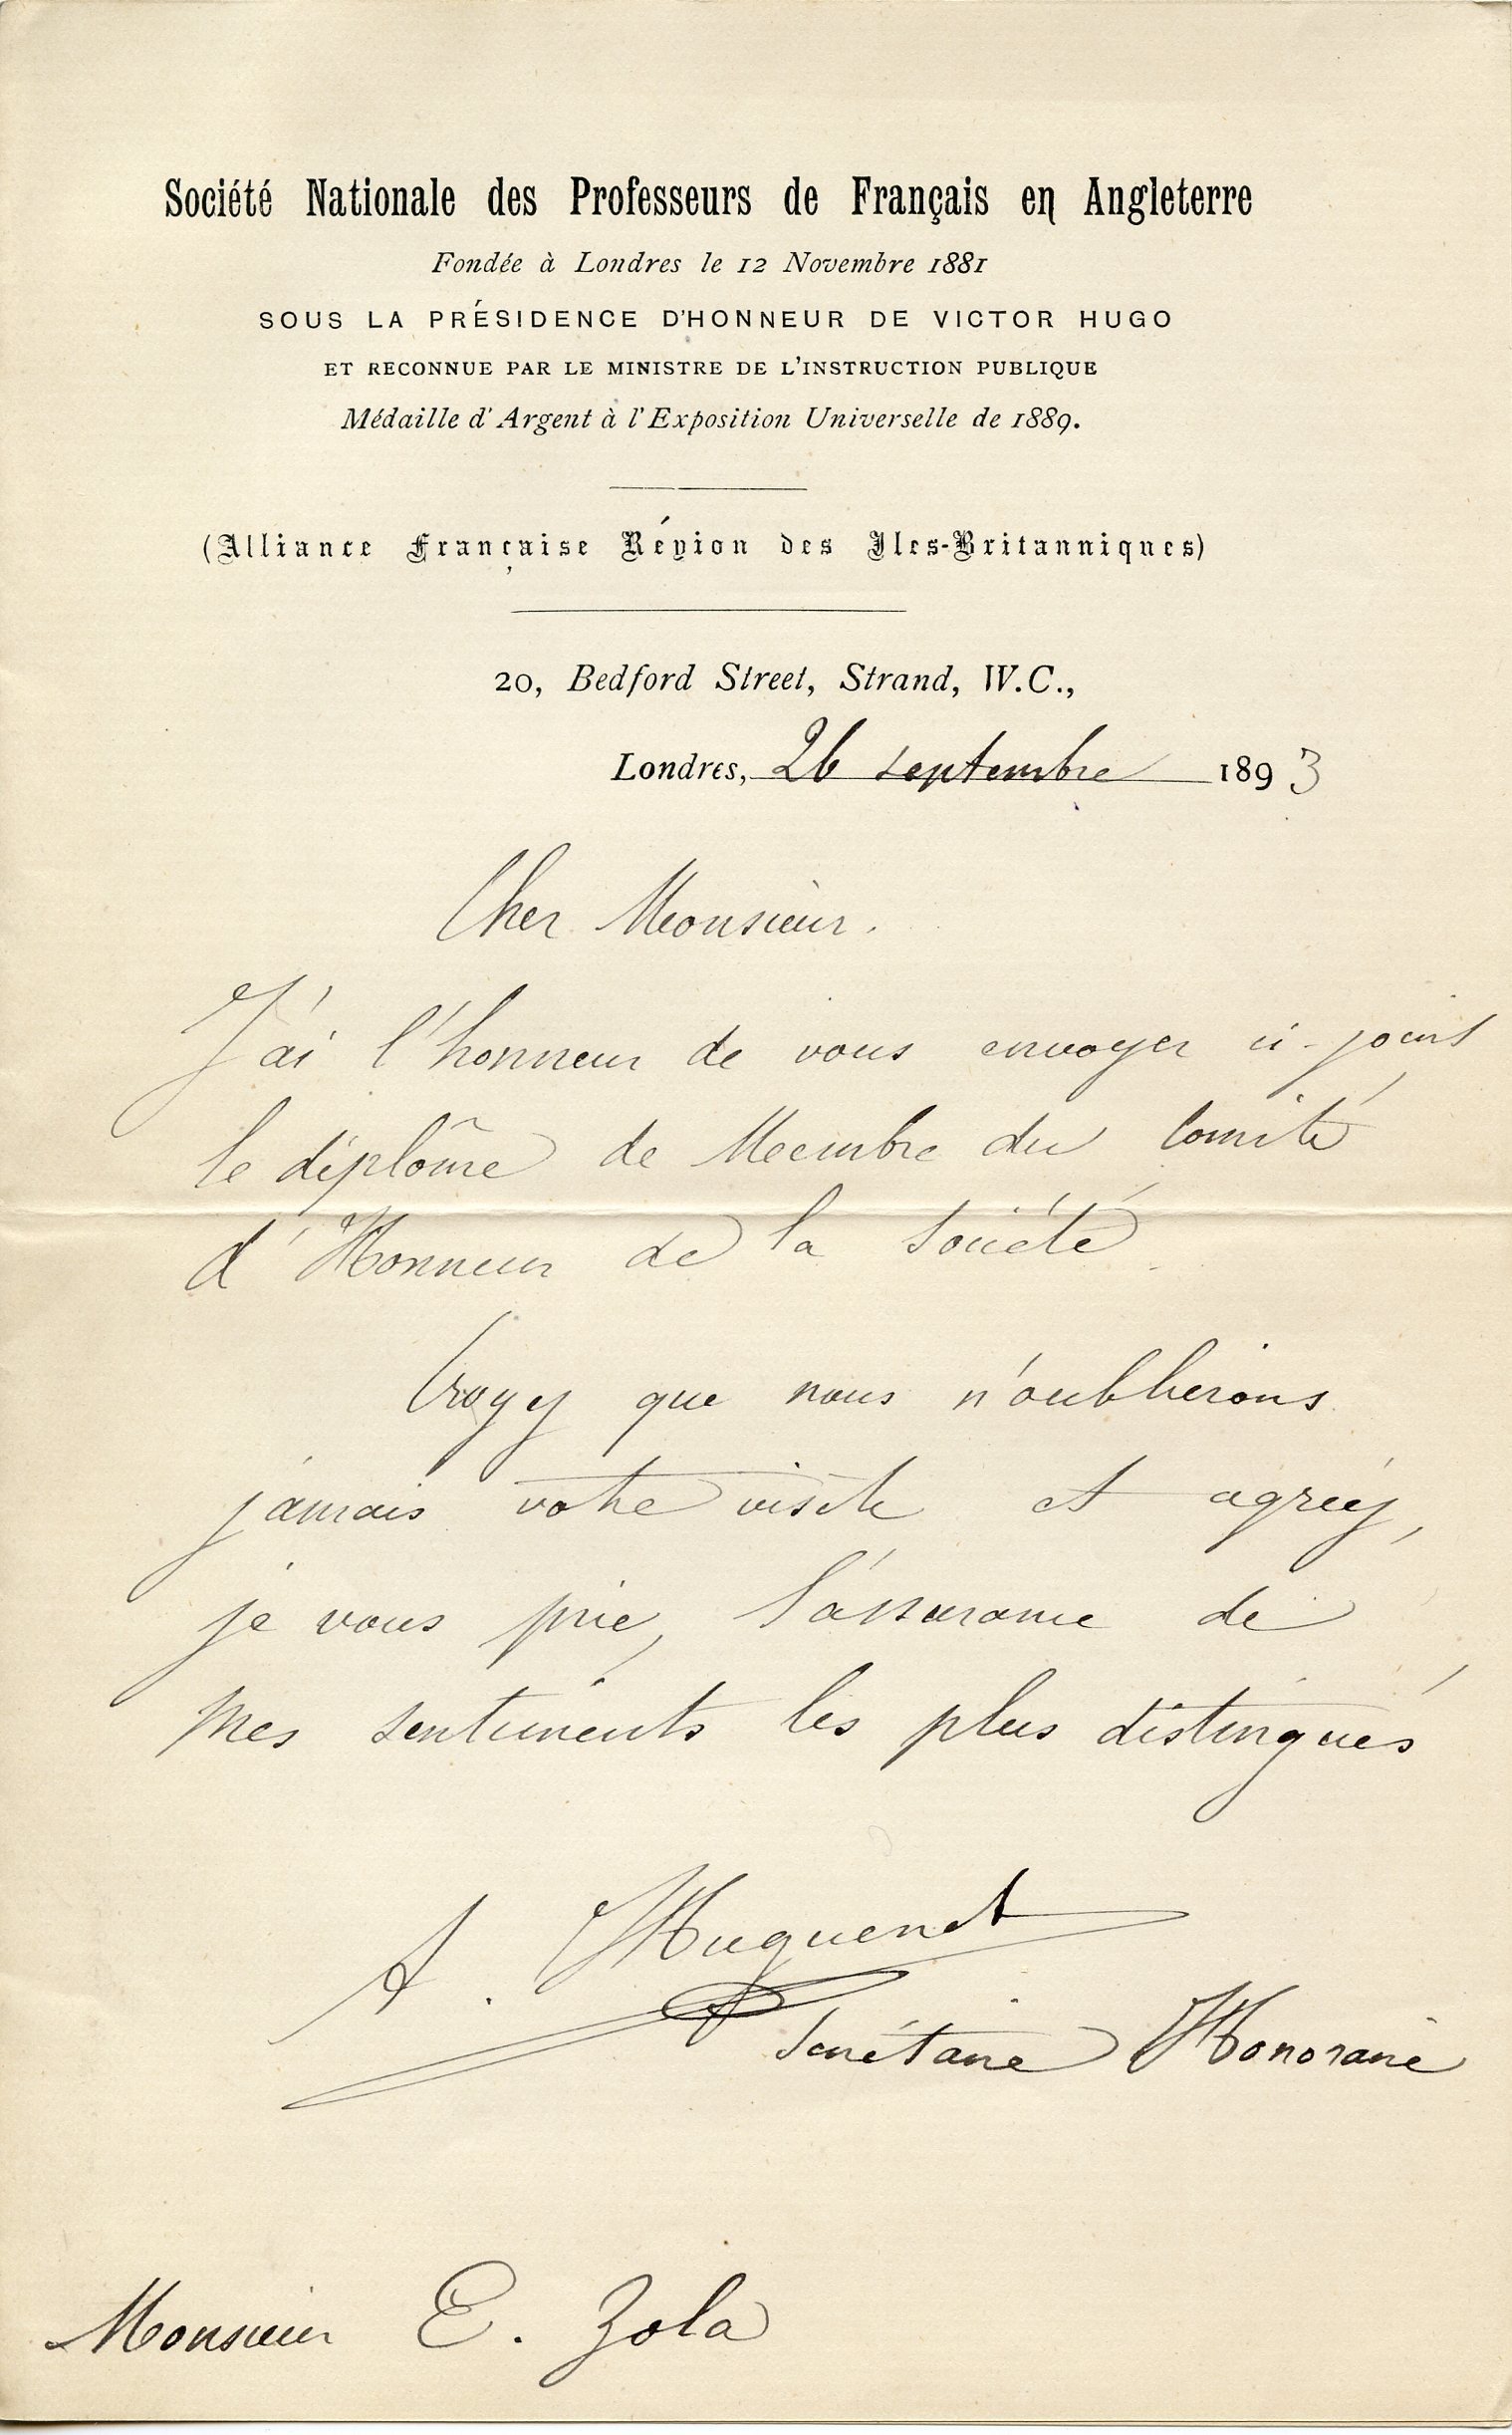 Société Nationale des Professeurs de Français en Angleterre
Fondée à Londres le 12 Novembre 1881
SOUS LA PRÉSIDENCE D'HONNEUR DE VICTOR HUGO
ET RECONNUE PAR LE MINISTRE DE L'INSTRUCTION PUBLIQUE
Médaille d'Argent à l'Exposition Universelle de 1889.
(Alliance Française Région des Iles-Britanniques)
20, Bedford Street, Strand, W.C.,
Londres, 26 septembre 1893
Cher Monsieur.
J'ai l'honneur de vous envoyer ci-joint
le diplôme de Membre du Comité
d'Honneur de la Société.
Croyez que nous n'oublierons
jamais votre visite et agréez,
je vous prie, l'assurance de
mes sentiments les plus distingués
A. Huguenet
Secrétaire Honoraire
Monsieur E. Zola